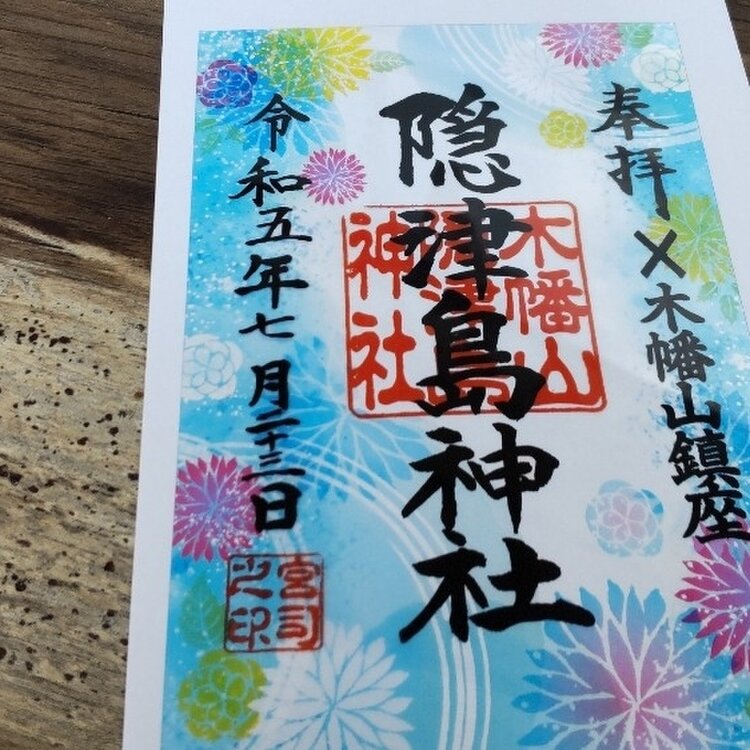 奉拝×木幡山鎮座
隠津島神社
木幡山
隠津島
神社
令和五年七月二十三日
宮司
之印